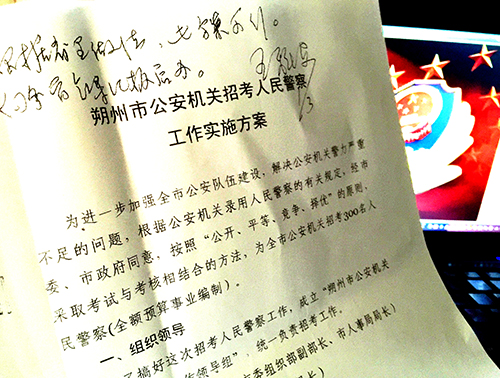 朔州市公安机关招考人民警察
工作实施方案
为进一步加强全市公安队伍建设，解决公安机关警力严重
不足的问题，根据公安机关录用人民警察的有关规定，经市
委、市政府同意，按照“公开、平等、竞争、择优”的原则，
采取考试与考核相结合的方法，为全市公安机关招考300名人
民警察(全额预算事业编制)。
一、组织领导
搞好这次招考人民警察工作，成立“朔州市公安机关
作领导组”，统一负责招考工作。
委组织部副部长、市人事局局长)